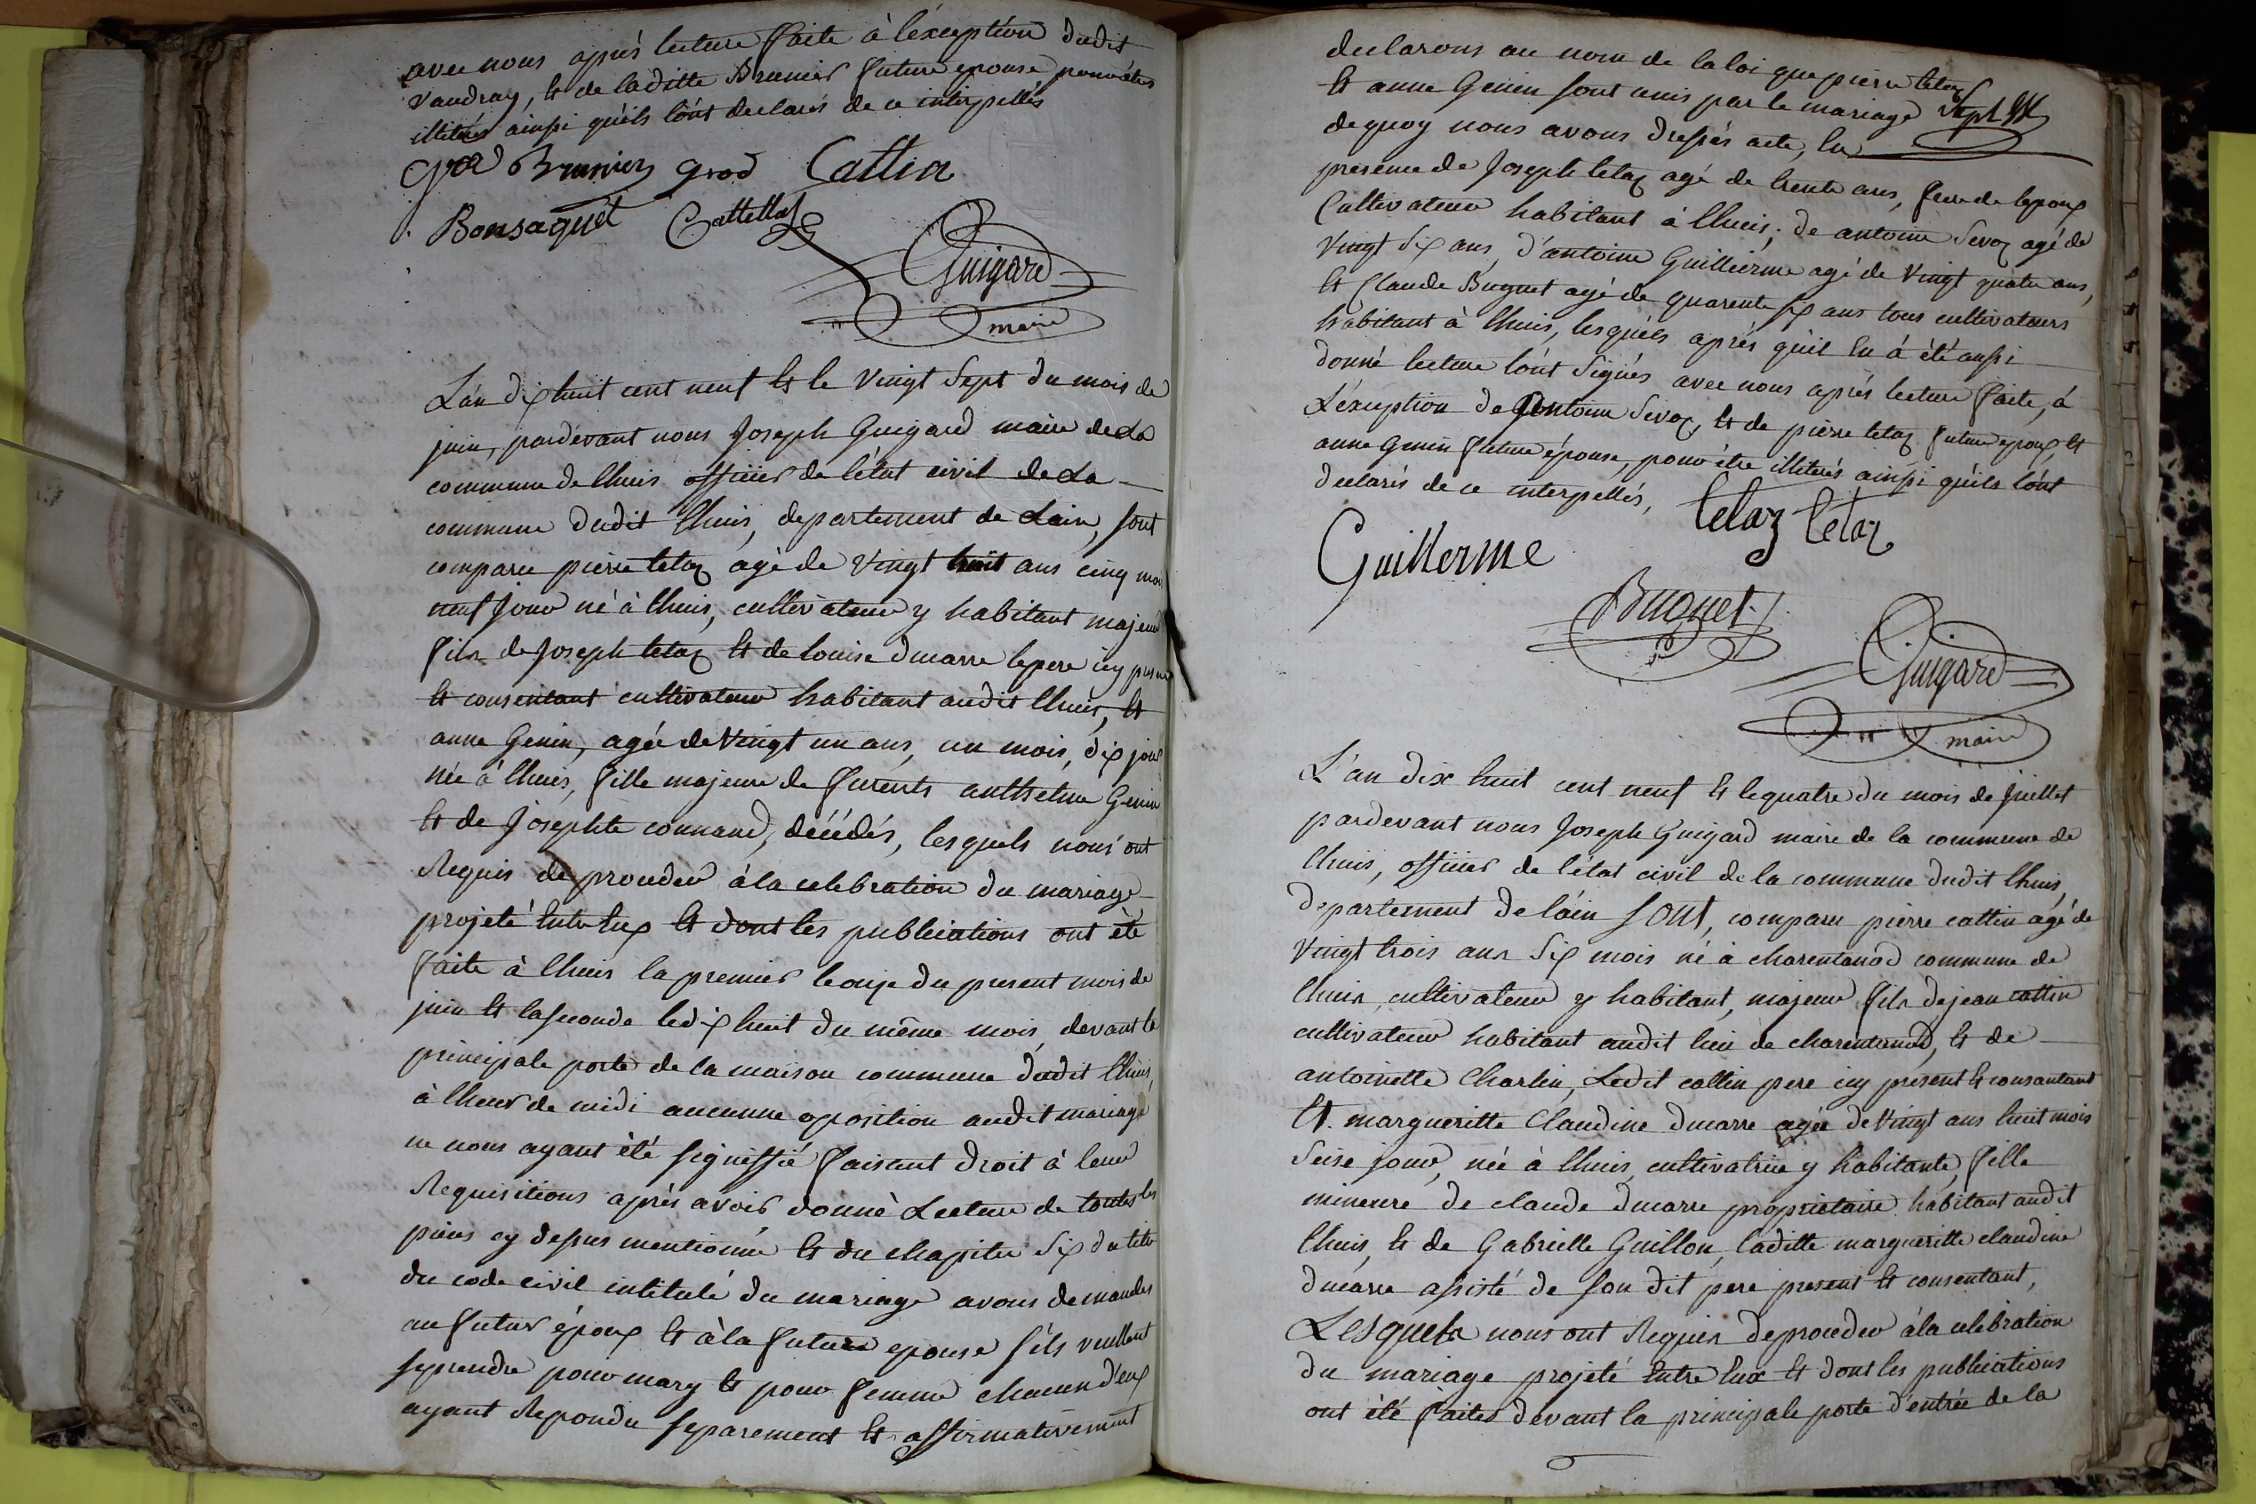 avec nous aprés lecture faite à l'éxception dudit
vaudray, et de laditte Brunier future epouse pour être
illitérés ainssi quéils lónt declarés de ce interpellés
Brunier grod Cattin
Bonsaquet Cattella
Guigard
maire
L'an dix huit cent neuf et le vingt sept du mois de
juin, pardévant nous Joseph Guigard maire de La
commune de lhuis officier de létat civil de La
commune dudit lhuis, departement de Lain, sont
comparu pierre tetaz agé de vingt huit ans cinq mois
neuf jour né à lhuis, cultivateur y habitant majeur
fils de Joseph tetaz et de louise ducarre le pere icy present
et consentant cultivateur habitant audit lhuis, et
anne Genin, agée de vingt un ans, un mois, dix jour
née à lhuis, fille majeure de furents anthelme Genin
et de Josephte connand, décédés, lesquels nous ont
Requis de proceder à la celebration du mariage
projeté entre Eux et dont les publications ont èté
faite à lhuis la premier le onze du present mois de
juin et la seconde le dix huit du même mois, devant la
principale porte de la maison commune dudit lhuis,
à lheur de midi aucunne oposition audit mariage
ne nous ayant èté signiffié faisant droit à leur
Requisitions aprés avoir donnè Lecture de toutes les
pieces cy dessus mentionné et du chapitre Six du titre
du code civil intitulé du mariage avons demandes
au futur époux et à la future epouse s'ils veullent
seprendre pour mary et pour femme chacun d'eux
ayant Repondu separement et affirmativement
declarons au nom de la loi que pierre tetaz
et anne Genin sont unis par le mariage
de quoy nous avons dressés acte, En
presence de Joseph tetaz agé de trente ans, frere de lepoux
Cultivateur habitant à lhuis, de antoine Sevoz agé de
vingt six ans, d'antoine Guillierme agé de vingt quatre ans,
et Claude Buquet agé de quarente six ans tous cultivateurs
habitant à lhuis, lesquéls aprés quil En à èté aussi
donné lecture lónt Signés avec nous aprés lecture faite, à
L'éxception de Antoine Sevoz, et de pierre tetaz future epoux, et
anne Genin future épouse, pour être illiterés ainssi quéils lónt
declarés de ce interpellés,
tetaz tetaz
Guillerme
Buquet
Guigard
maire
L'an dix huit cent neuf et le quatre du mois de juillet
pardevant nous Joseph Guigard maire de la commune de
lhuis, officier de létat civil de la commune dudit lhuis,
departement de láin sont, comparu pierre cattin agé de
vingt trois ans Six mois né à charentanod commune de
lhuis, cultivateur y habitant, majeur fils de jean cattin
cultivateur habitant audit lieu de charentanod, et de
antoinette Charlin, Ledit cattin pere icy present et consantant
et margueritte Claudine ducarre agée de vingt ans huit mois
Seise jour, née à lhuis, cultivatrice y habitante, fille
mineure de claude ducarre proprietaire habitant audit
lhuis, et de Gabrielle Guillon, laditte margueritte claudine
ducarre assisté de son dit pere present et consentant,
Lesquels nous ont Requis de proceder à la celebration
du mariage projeté Entre Eux et dont les publications
ont èté faites devant la principale porte d'entrée de la